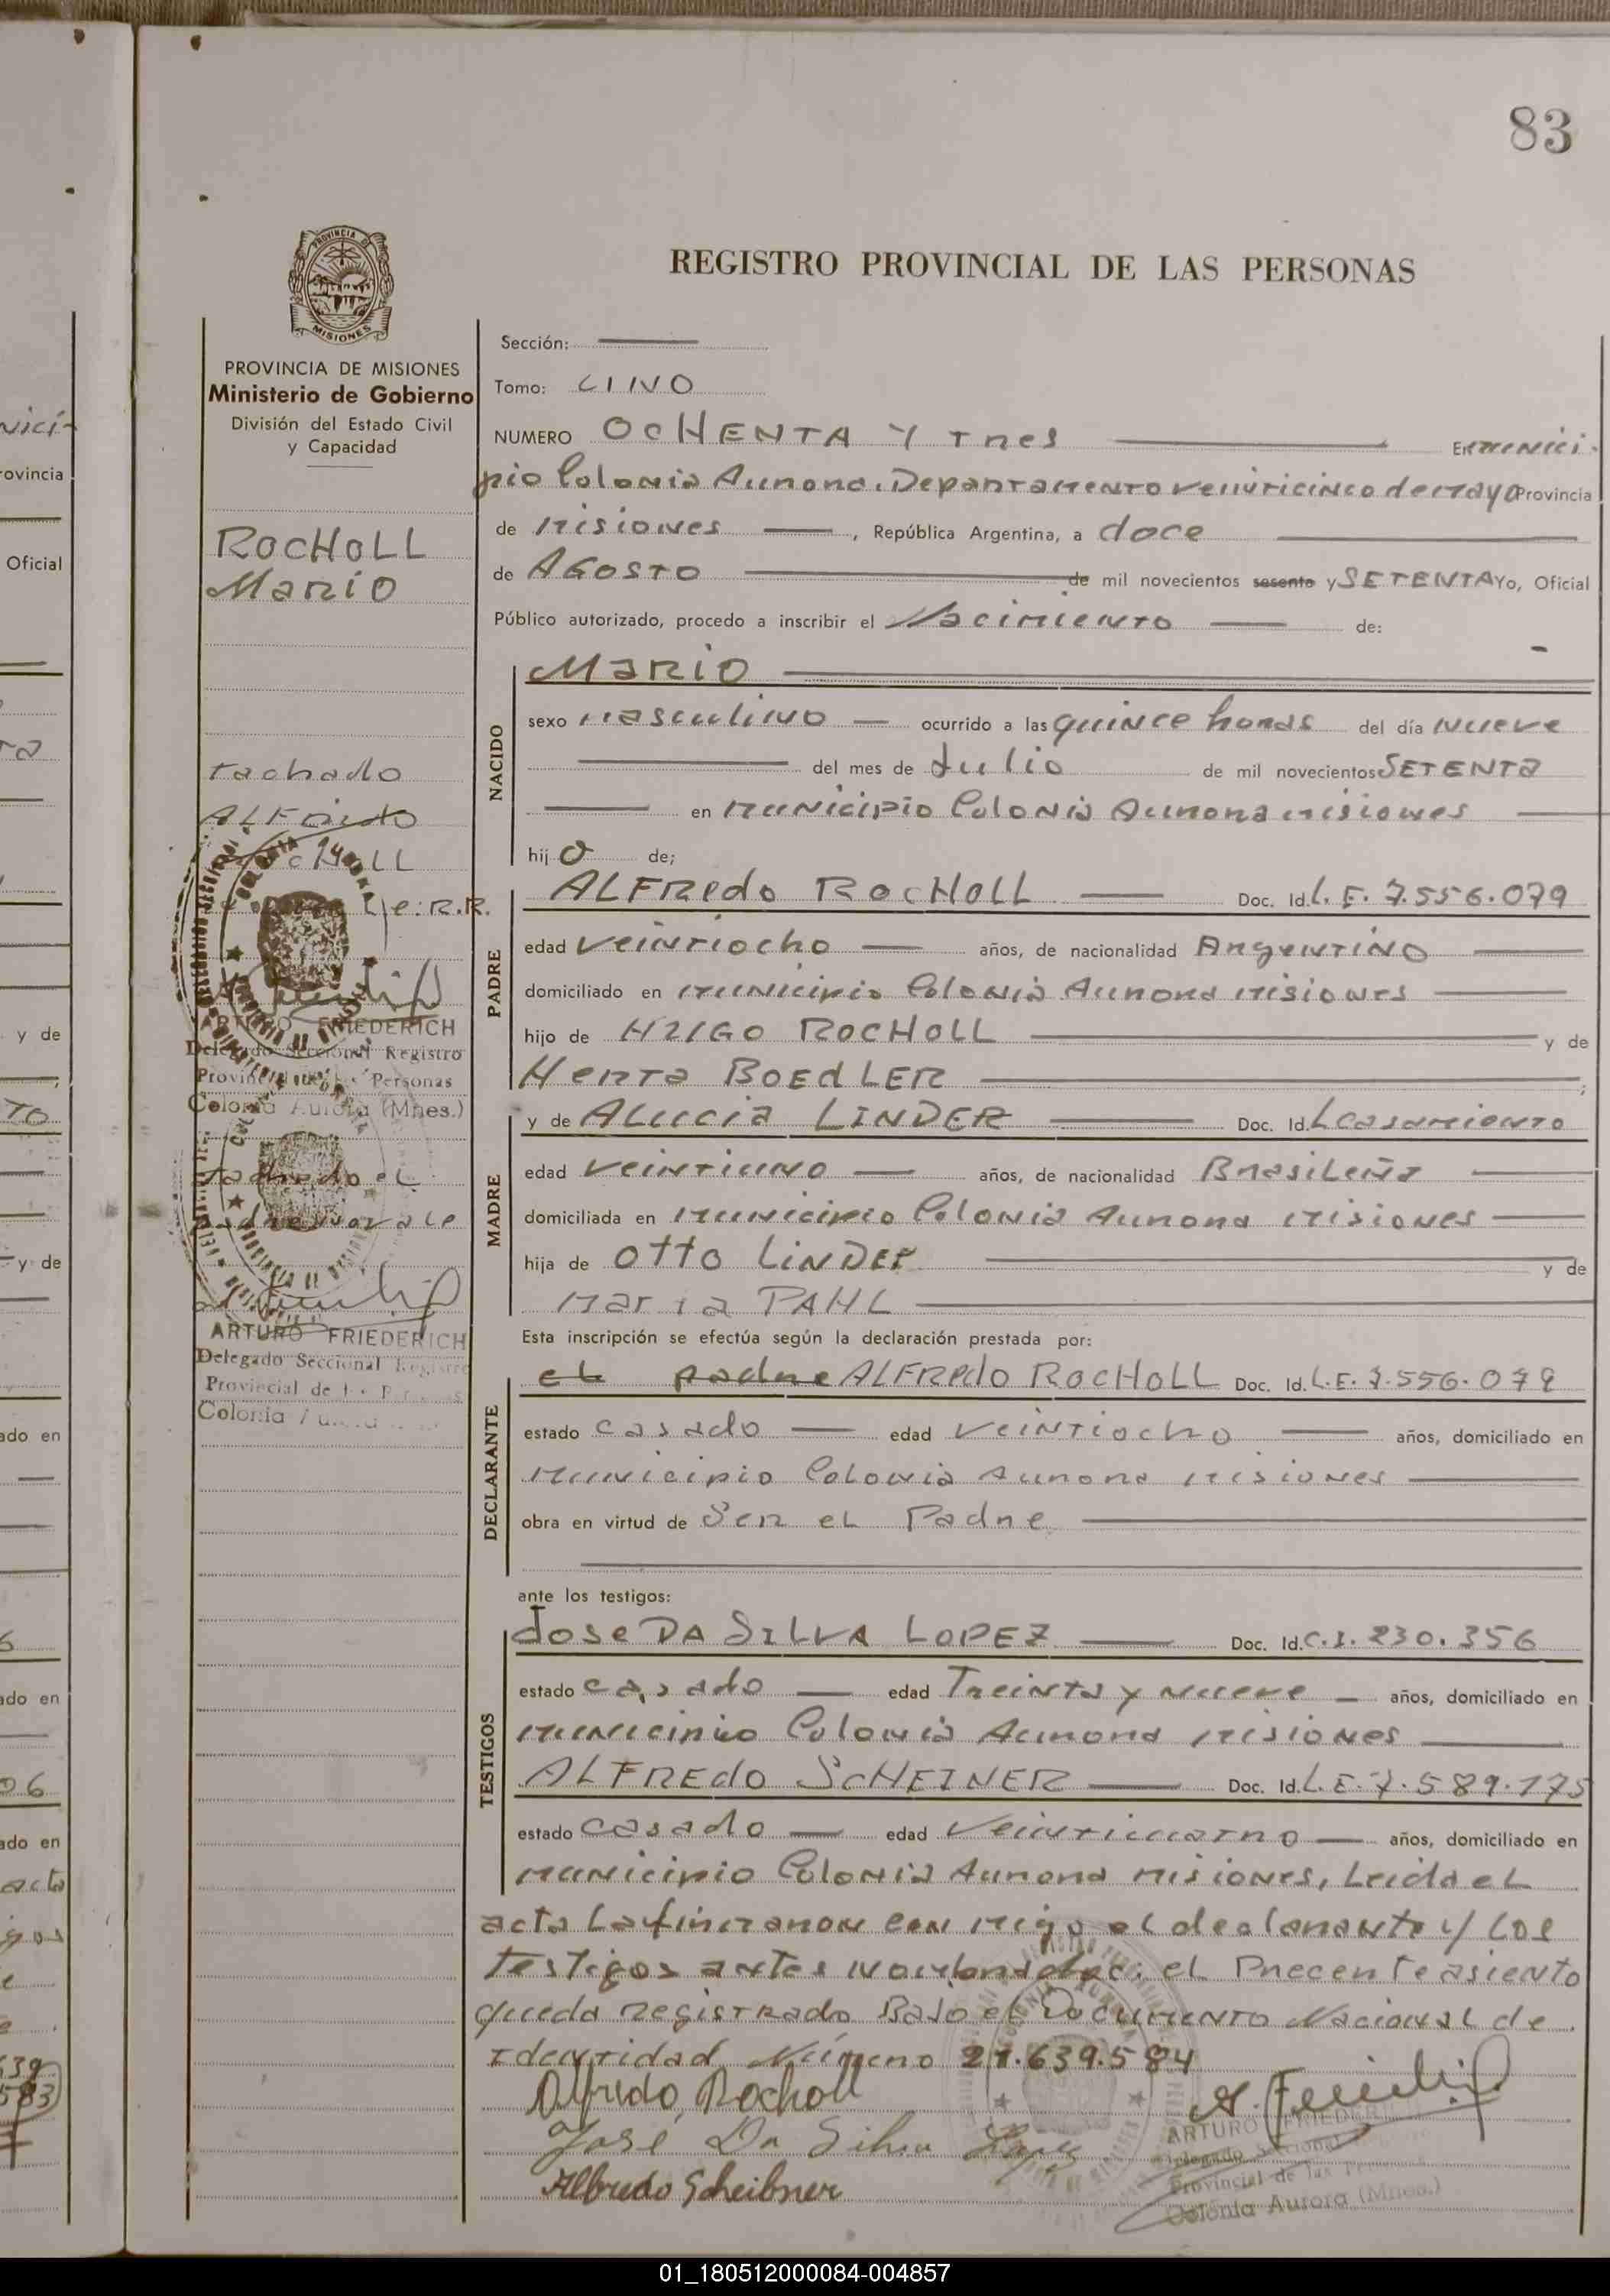 83
PROVINCIA DE
MISIONES
PROVINCIA DE MISIONES
Ministerio de Gobierno
División del Estado Civil
y Capacidad
REGISTRO PROVINCIAL DE LAS PERSONAS
Sección:
Tomo: UNO
NUMERO OCHENTA Y Tres En munici-
pio Colonia Aurora. Departamento veinticinco de mayo Provincia
de Misiones, República Argentina, a doce
de AGOSTO de mil novecientos sesenta y SETENTA Yo, Oficial
Público autorizado, procedo a inscribir el Nacimiento de:
ROCHOLL
Mario
NACIDO
Mario
sexo masculino ocurrido a las quince horas del día nueve
del mes de Julio de mil novecientos SETENTA
en municipio Colonia Aurora misiones
hijo de;
PADRE
ALFRedo ROCHOLL Doc. Id. L. E. 7.556.079
edad veintiocho años, de nacionalidad Argentino
domiciliado en municipio Colonia Aurora misiones
hijo de HUGO ROCHOLL y de
Herta BOEdLER
MADRE
y de ALUCia LINDER Doc. Id. L casamiento
edad veintiuno años, de nacionalidad BrasiLeña
domiciliada en municipio Colonia Aurora misiones
hija de OTTO LiNDER y de
Maria PAHL
Esta inscripción se efectúa según la declaración prestada por:
DECLARANTE
eL padre ALFRedo ROCHOLL Doc. Id. L. E. 7.556.079
estado casado edad veintiocho años, domiciliado en
municipio Colonia Aurora misiones
obra en virtud de Ser eL Padre
ante los testigos:
TESTIGOS
Jose DA SILVA LOPEZ Doc. Id. C. I. 230.356
estado casado edad Treinta y nueve años, domiciliado en
municipio Colonia Aurora misiones
ALFREdo SCHEINER Doc. Id. L. E. 7.589.175
estado casado edad Veinticuatro años, domiciliado en
municipio Colonia Aurora misiones, Leida eL
acta La firmaron con migo el declarante y Los
testigos antes nombrados. eL Precente asiento
queda registrado Bajo el Documento Nacional de
Identidad Número 21.639.584
Alfredo Rocholl
José Da Silva López
Alfredo Scheibner
A. Friederich
ARTURO FRIEDERICH
Delegado Seccional
Provincial de las Personas
Colonia Aurora (Mnes.)
tachado
ALFredo
RocHOLL
ARTURO FRIEDERICH
Delegado Seccional Registro
Provincial de las Personas
Colonia Aurora (Mnes.)
tachado eL
padre no vale
ARTURO FRIEDERICH
Delegado Seccional Registro
Provincial de las Personas
Colonia Aurora
nici-
rovincia
Oficial
y de
TO
y de
ado en
ado en
06
ado en
acta
639
583
01_180512000084-004857